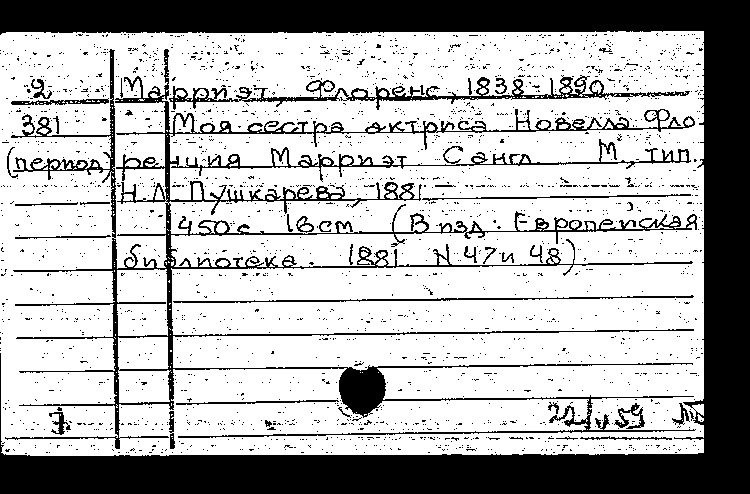 2 Марриэт, Флоренс, 1838-1890
381 Моя сестра актриса Новелла Фло-
(период) ренция Марриэт С англ. М., тип.,
Н.Л. Пушкарева, 1881 —
450 с. 16 см. (В изд. Европейская
библиотека. 1881. N 47 и 48).
7 22/V 59